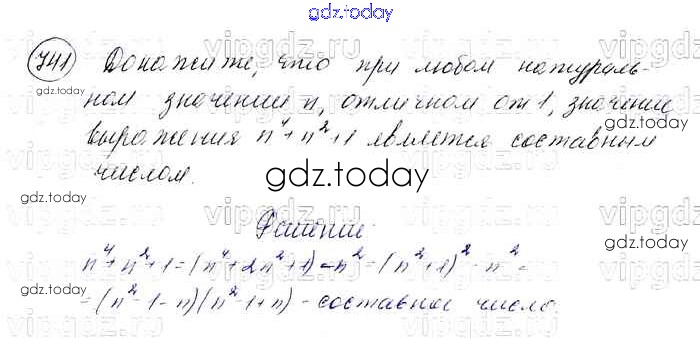 gdz.today
741 Докажите, что при любом натураль-
ном значении n, отличном от 1, значение
выражения n⁴+n²+1 является составным
числом.
gdz.today
gdz.today
gdz.today
Решение
n⁴+n²+1=(n⁴+2n²+1)-n²=(n²+1)²-n²=
=(n²-1-n)(n²-1+n) - составное число.
gdz.today
gdz.today